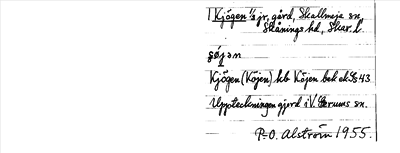 Kjögen 1/2 jr, gård, Skallmeja sn,
Skånings hd, Skar. l.
Kjögen (Köjen) hb Köjen bek
Uppteckningen gjord i V. Gerums sn.
P.O. Alström 1955.